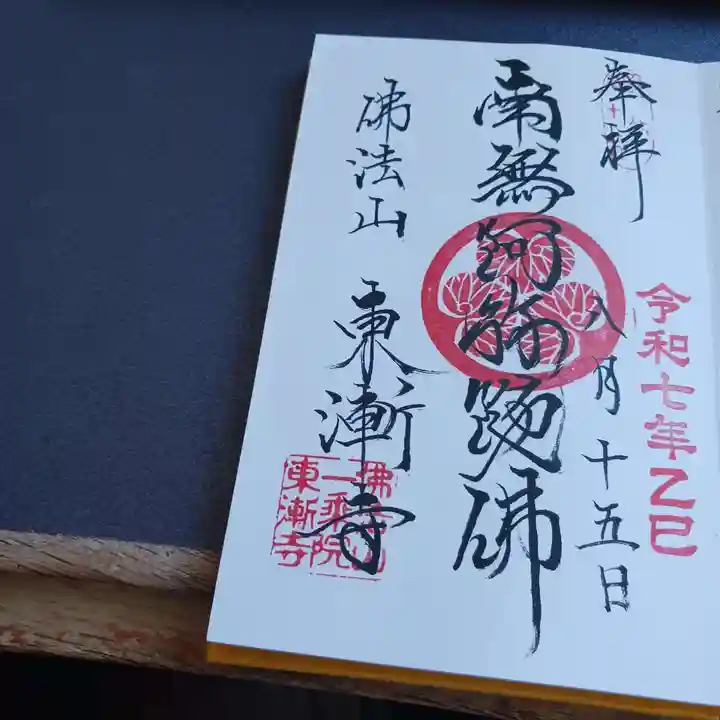 奉拝
令和七年乙巳
八月十五日
南無阿弥陀佛
佛法山 東漸寺
佛法山
一乗院
東漸寺